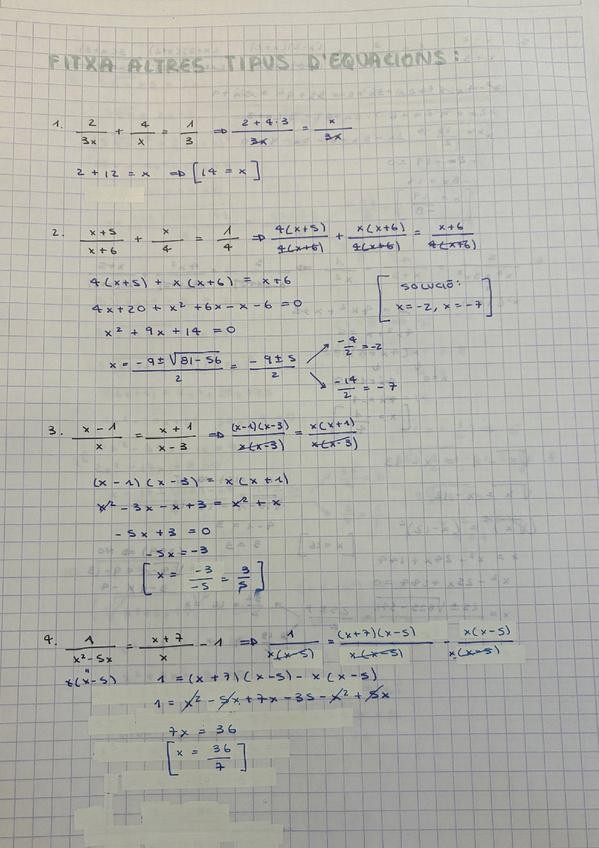 FITXA ALTRES TIPUS D'EQUACIONS:
1. 2/3x + 4/x = 1/3 ⇒ (2+4·3)/3x = x/3x
2 + 12 = x ⇒ [14 = x]
2. (x+5)/(x+6) + x/4 = 1/4 ⇒ 4(x+5)/4(x+6) + x(x+6)/4(x+6) = (x+6)/4(x+6)
4(x+5) + x(x+6) = x+6
4x+20 + x² + 6x - x - 6 = 0
x² + 9x + 14 = 0
x = (-9 ± √(81-56))/2 = (-9 ± 5)/2
-4/2 = -2
-14/2 = -7
[SOLUCIÓ:
x = -2, x = -7]
3. (x-1)/x = (x+1)/(x-3) ⇒ (x-1)(x-3)/x(x-3) = x(x+1)/x(x-3)
(x-1)(x-3) = x(x+1)
x² - 3x - x + 3 = x² + x
-5x + 3 = 0
-5x = -3
[x = -3/-5 = 3/5]
4. 1/(x²-5x) = (x+7)/x - 1 ⇒ 1/x(x-5) = (x+7)(x-5)/x(x-5) - x(x-5)/x(x-5)
x(x-5)
1 = (x+7)(x-5) - x(x-5)
1 = x² - 5x + 7x - 35 - x² + 5x
7x = 36
[x = 36/7]